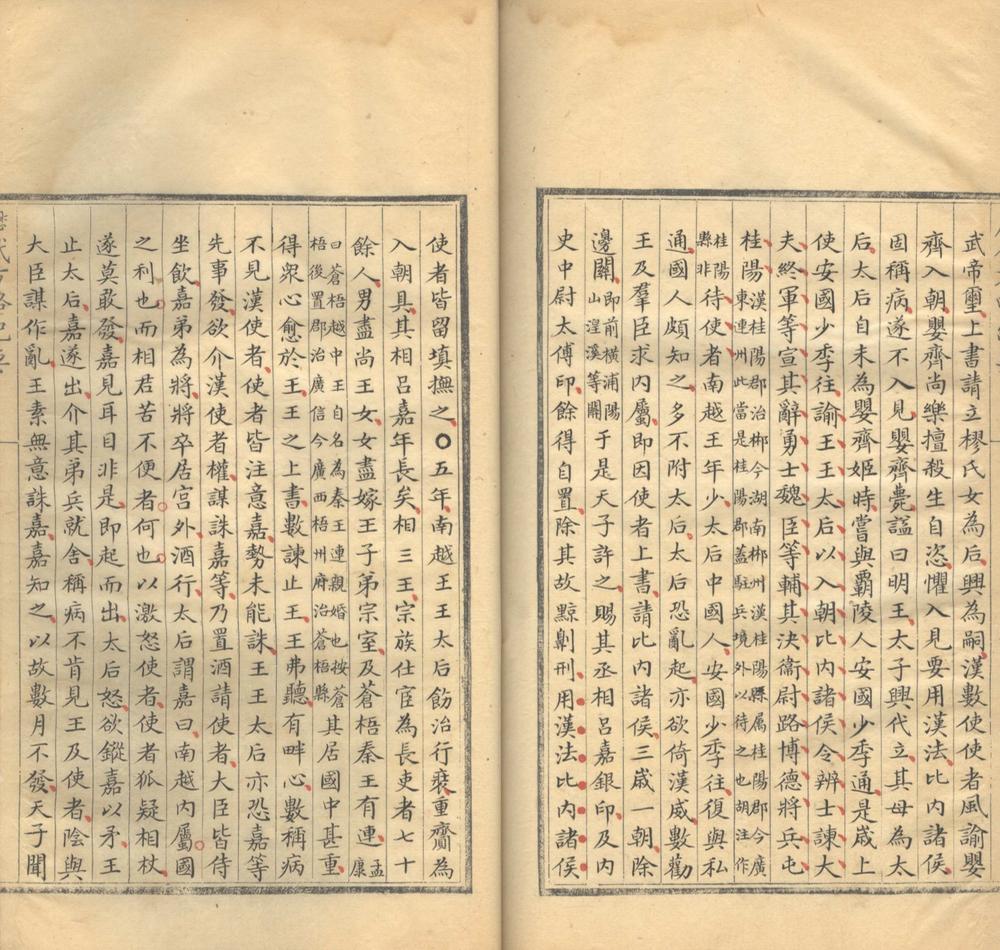 武帝璽上書請立樛氏女為后興為嗣漢數使使者風諭嬰
齊入朝嬰齊尚樂擅殺生自恣懼入見要用漢法比內諸侯
固稱病遂不入見嬰齊薨諡曰明王太子興代立其母為太
后太后自未為嬰齊姬時嘗與霸陵人安國少季通是歲上
使安國少季往諭王王太后以入朝比內諸侯令辨士諫大
夫終軍等宣其辭勇士魏臣等輔其決衞尉路博德將兵屯
桂陽漢桂陽郡治郴今湖南郴州漢桂陽縣属桂陽郡今廣東連州此當是桂陽郡蓋駐兵境外以待之也胡注作
桂陽縣非待使者南越王年少太后中國人安國少季往復與私
通國人頗知之多不附太后太后恐亂起亦欲倚漢威數勸
王及羣臣求內屬即因使者上書請比內諸侯三歲一朝除
邊關即前橫浦陽山湟溪等關于是天子許之賜其丞相呂嘉銀印及內
史中尉太傅印餘得自置除其故黥劓刑用漢法比內諸侯
使者皆留填撫之○五年南越王王太后飭治行裝重齎為
入朝具其相呂嘉年長矣相三王宗族仕宦為長吏者七十
餘人男盡尚王女女盡嫁王子弟宗室及蒼梧秦王有連孟康
曰蒼梧越中王自名為秦王連親婚也按蒼梧後置郡治廣信今廣西梧州府治蒼梧縣其居國中甚重
得眾心愈於王王之上書數諫止王王弗聽有畔心數稱病
不見漢使者使者皆注意嘉勢未能誅王王太后亦恐嘉等
先事發欲介漢使者權謀誅嘉等乃置酒請使者大臣皆侍
坐飲嘉弟為將將卒居宮外酒行太后謂嘉曰南越內屬國
之利也而相君苦不便者何也以激怒使者使者狐疑相杖
遂莫敢發嘉見耳目非是即起而出太后怒欲鏦嘉以矛王
止太后嘉遂出介其弟兵就舍稱病不肯見王及使者陰與
大臣謀作亂王素無意誅嘉嘉知之以故數月不發天子聞